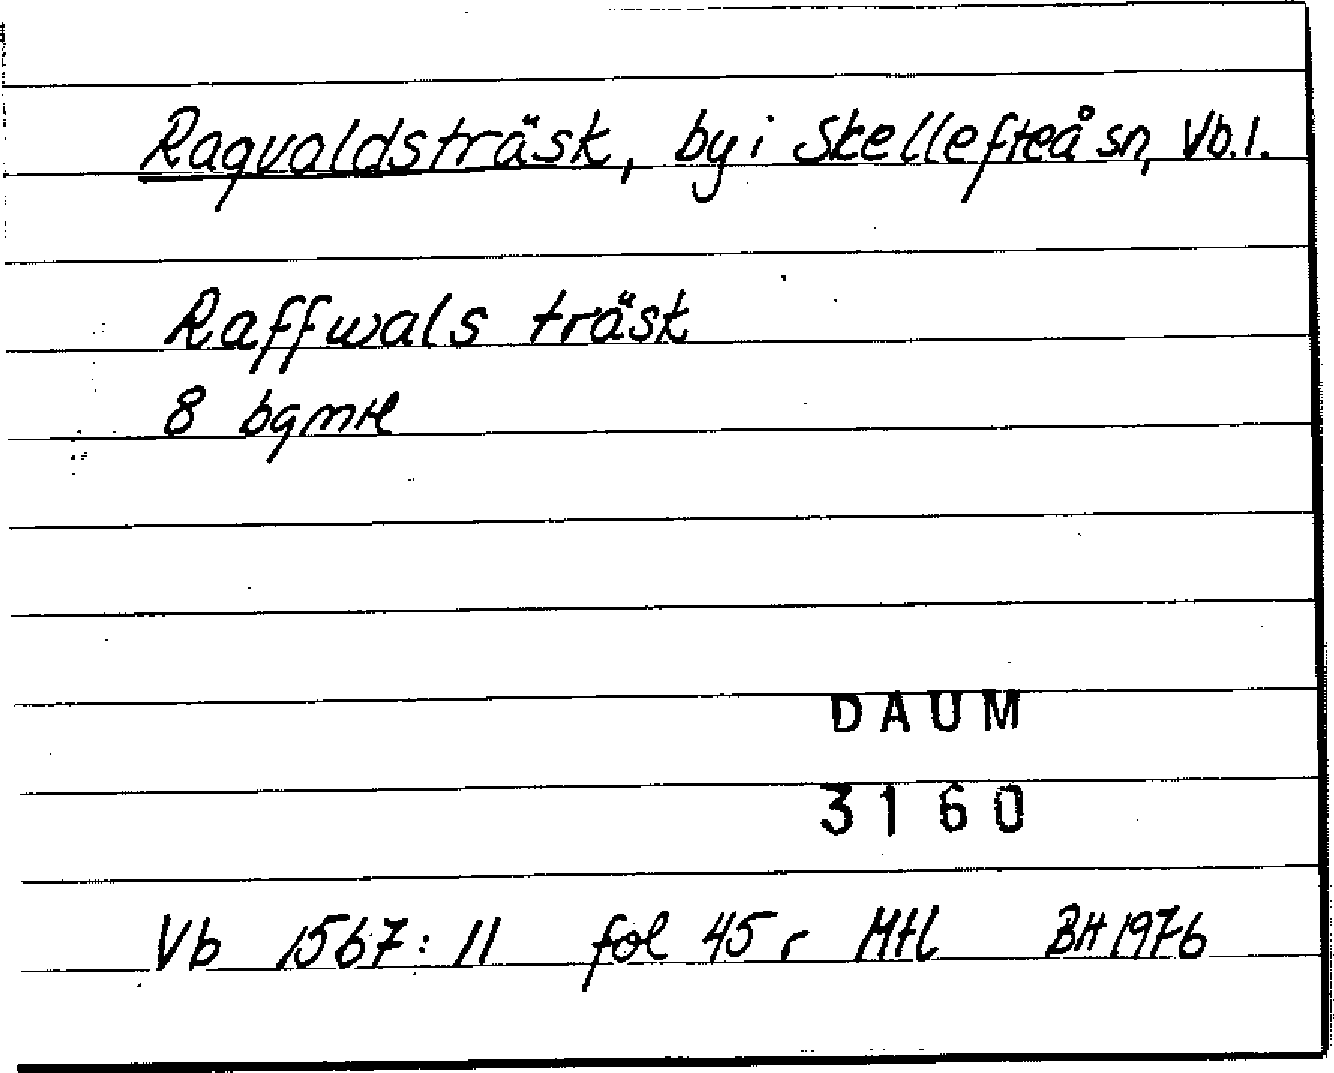 Ragvaldsträsk, by i Skellefteå sn, Vb. l.
Raffwals träsk
8 bgmtl
DAUM
3160
Vb 1567:11 fol 45 r Mtl BH 1976